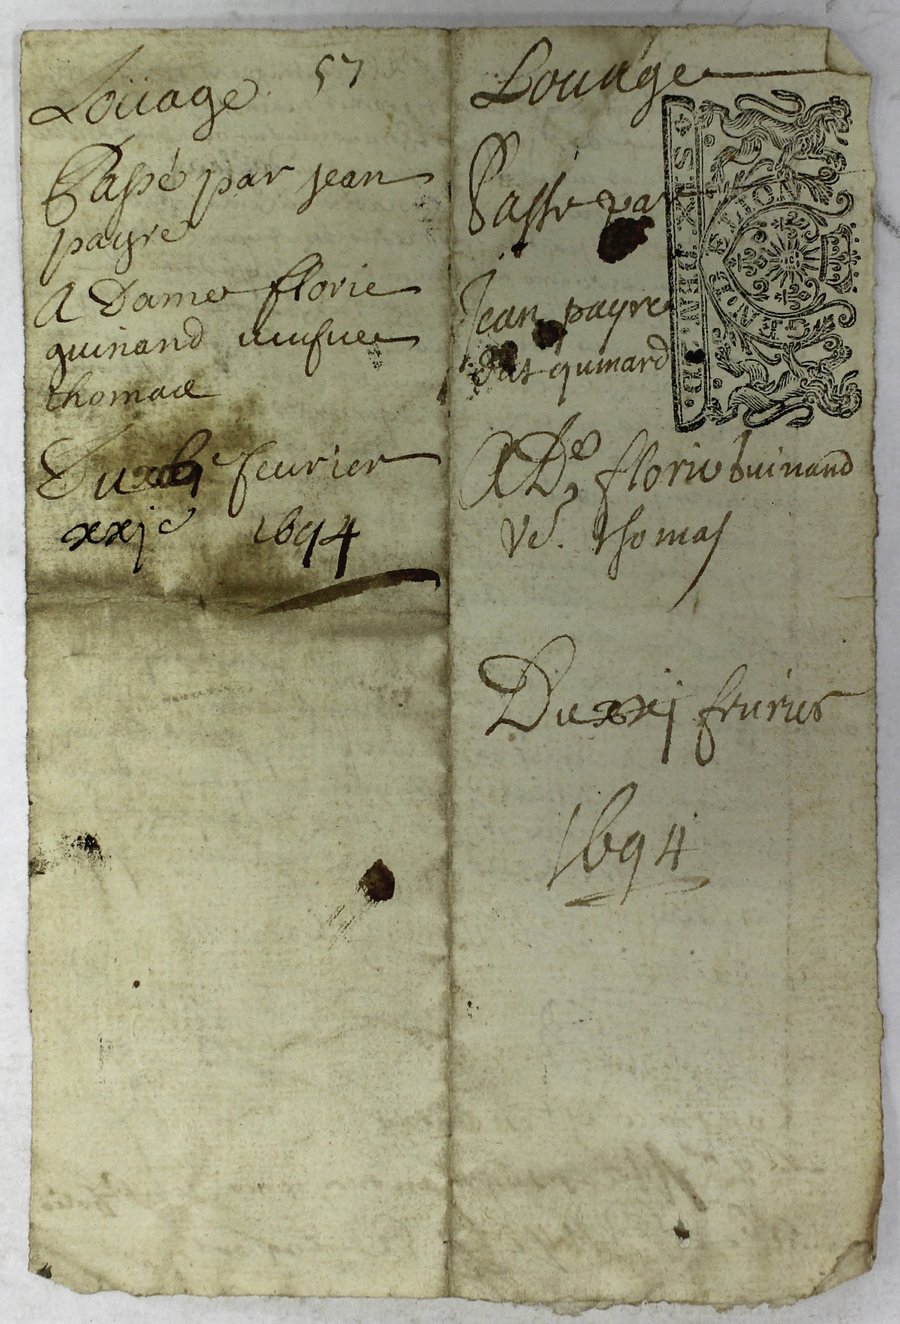 Loüage 57
Passé par Jean
payre
A Dame florie
guinand
thomas
Du fevrier
xxje 1694
Louage
Passé par
Jean payre
dit guinard
A De florie guinand
Ve. thomas
Du xxj fevrier
1694
GENERALITE DE LYON